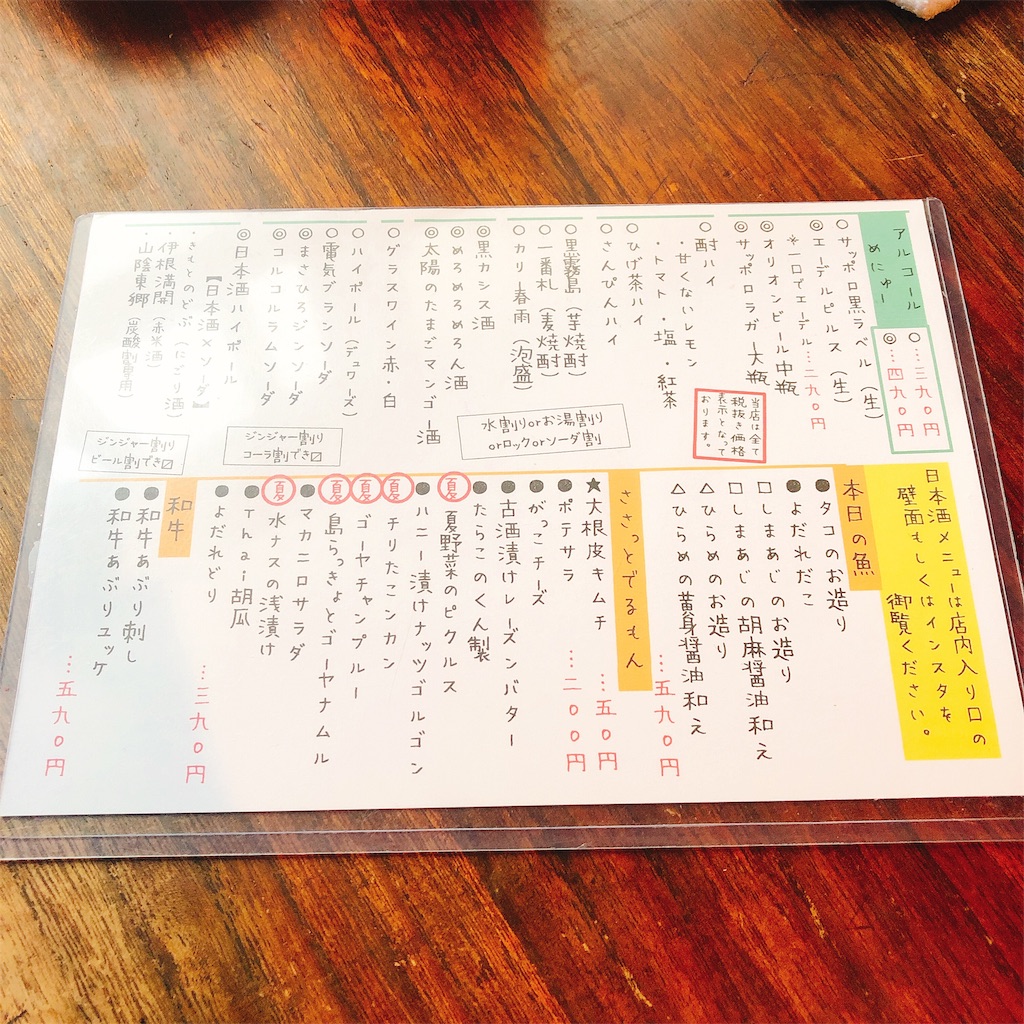 アルコール
めにゅー
○…三九〇円
◎…四九〇円
○サッポロ黒ラベル(生)
◎エーデルピルス(生)
※一口でエーデル…二九〇円
◎オリオンビール中瓶
◎サッポロラガー大瓶
○酎ハイ
・甘くないレモン
・トマト・塩・紅茶
○ひげ茶ハイ
○さんぴんハイ
当店は全て
税抜き価格
表示となって
おります。
○黒霧島(芋焼酎)
○一番札(麦焼酎)
○カリー春雨(泡盛)
○黒カシス酒
◎めろめろめろん酒
◎太陽のたまごマンゴー酒
水割りorお湯割り
orロックorソーダ割
○グラスワイン赤・白
○ハイボール(デュワーズ)
○電気ブランソーダ
◎まさひろジンソーダ
◎コルコルラムソーダ
ジンジャー割り
コーラ割でき〼
◎日本酒ハイボール
【日本酒×ソーダ】
・きもとのどぶ(にごり酒)
・伊根満開(赤米酒)
・山陰東郷(炭酸割専用)
ジンジャー割り
ビール割でき〼
日本酒メニューは店内入り口の
壁面もしくはインスタを
御覧ください。
本日の魚
●タコのお造り
●よだれだこ
□しまあじのお造り
□しまあじの胡麻醤油和え
△ひらめのお造り
△ひらめの黄身醤油和え
…五九〇円
ささっとでるもん
★大根皮キムチ…五〇円
●ポテサラ…二〇〇円
●がっこチーズ
●古酒漬けレーズンバター
●たらこのくん製
夏 夏野菜のピクルス
●ハニー漬けナッツゴルゴンゾ
夏 チリたこンカン
夏 ゴーヤチャンプルー
夏 島らっきょとゴーヤナムル
●マカニロサラダ
夏 水ナスの浅漬け
●Thai胡瓜
●よだれどり
…三九〇円
和牛
●和牛あぶり刺し
●和牛あぶりユッケ
…五九〇円